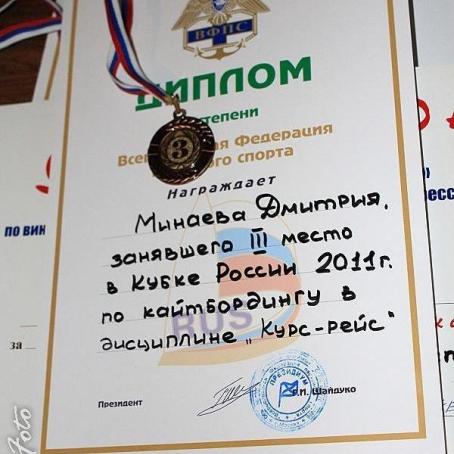 ВФПС
ДИПЛОМ
степени
Федерация
спорта
3
Награждает
Минаева Дмитрия,
занявшего III место
в Кубке России 2011г.
по кайтбордингу в
дисциплине „Курс-рейс“
RUS
ПО ВИН
за
ПРЕЗИДИУМ
Президент
Шайдуко
Foto